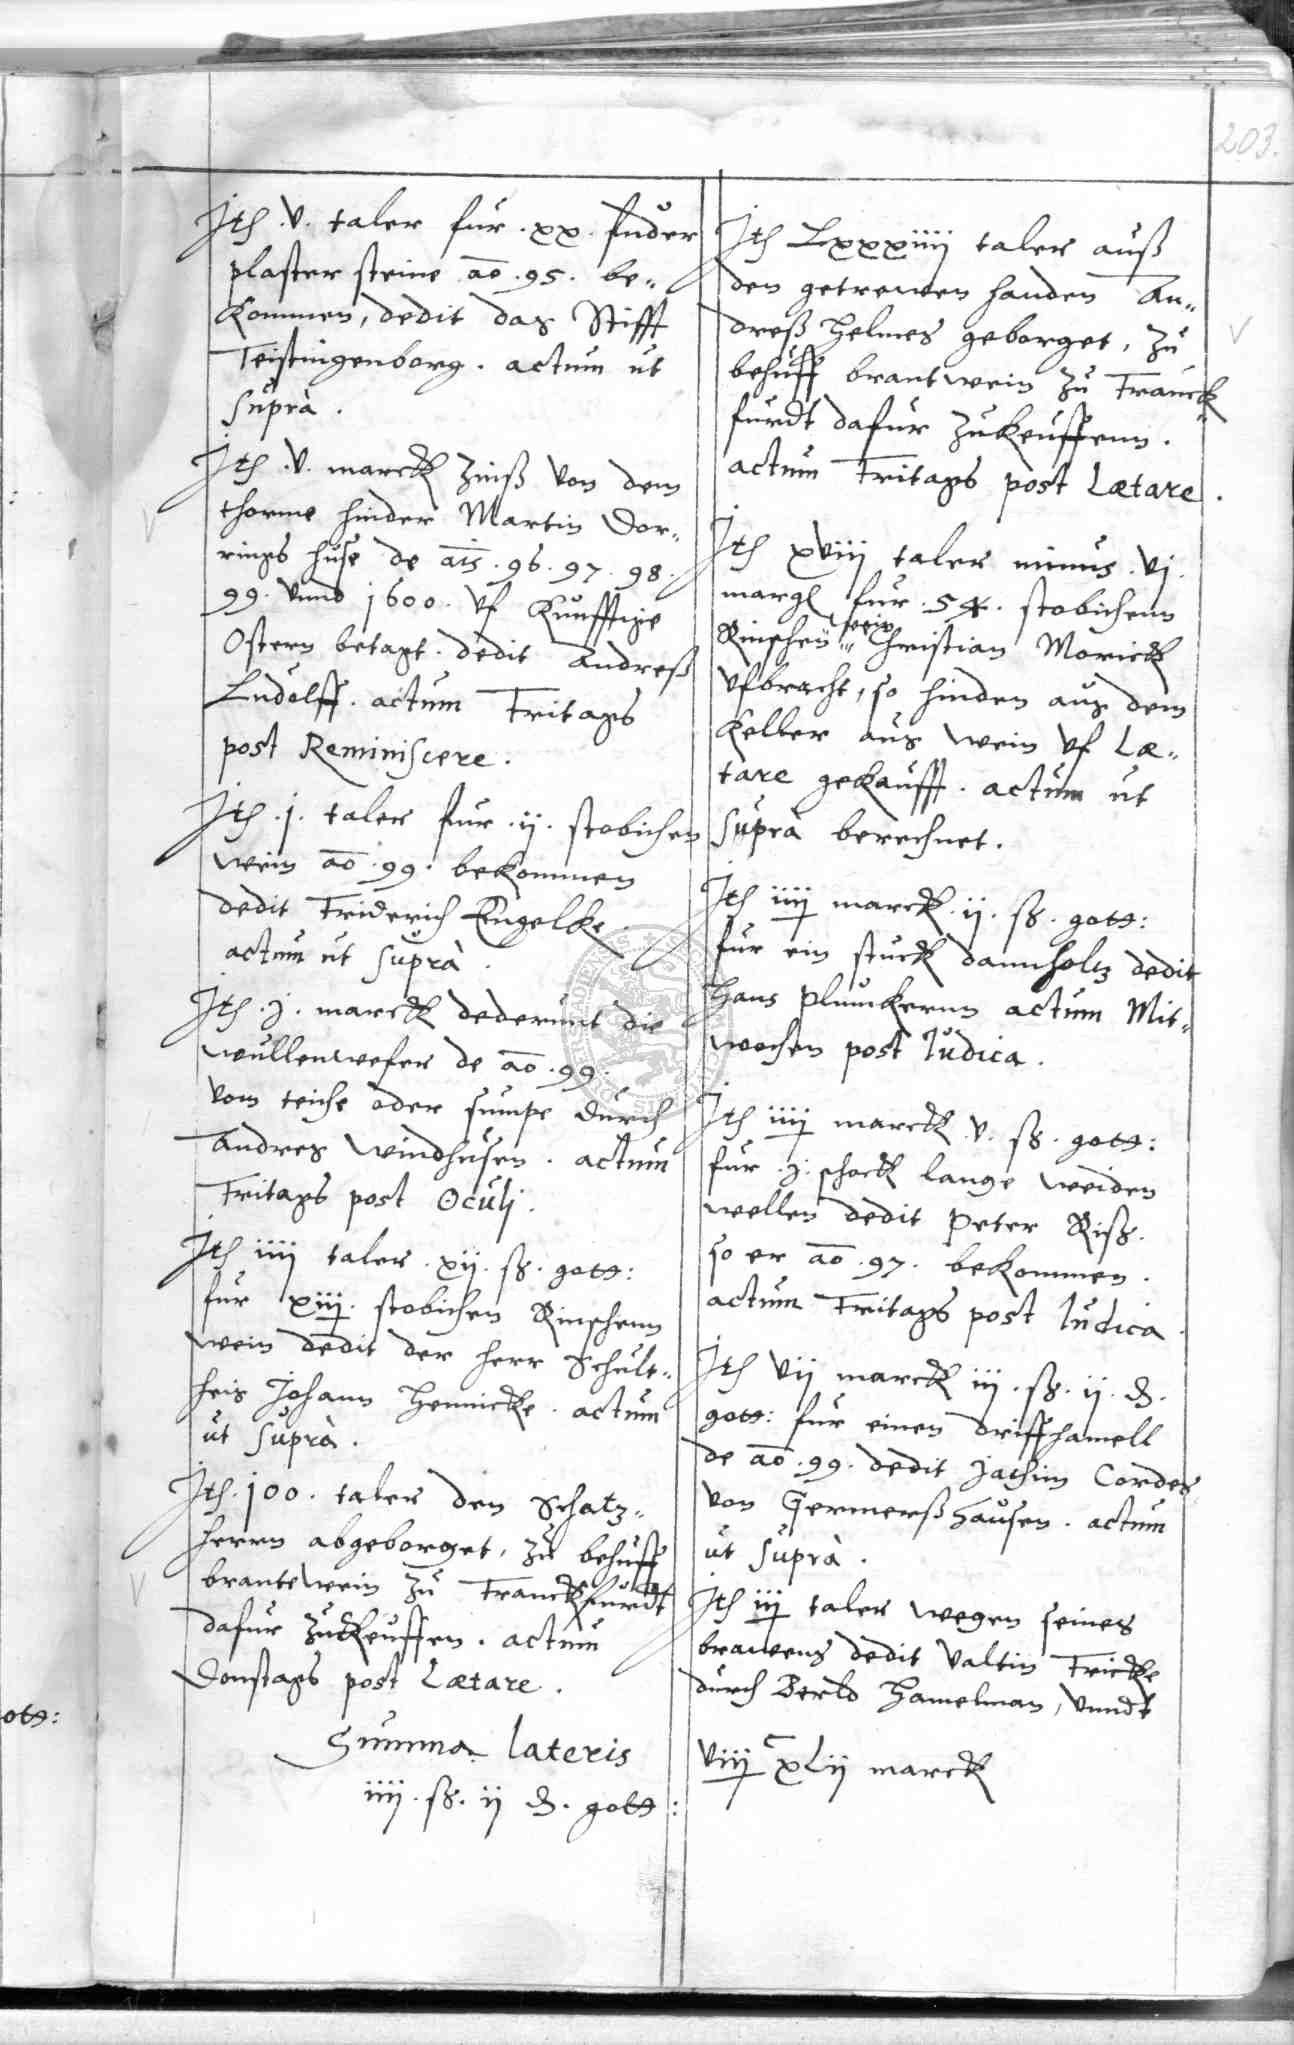 203.
Jth .v. taler fur .xx. fuder
plaster steine ao .95. be„
kommen, dedit das Stifft
Teistungenborg. actum ut
suprà.
Jth .v. marck zinß von dem
thorme hinder Martin Dor„
rings huse de ais .96. 97. 98.
99. vnnd 1600. vf kunfftige
Ostern betagt. dedit Andreß
Ludolff. actum Fritags
post Reminiscere.
Jth .j. taler fur .ij. stobichen
wein ao .99. bekommen
dedit Friderich Engelke.
actum ut suprà.
Jth .j. marck dederunt die
wullenwefer de ao .99.
vom teiche oder sumpe durch
Andres Windhusen. actum
Fritags post Oculj.
Jth iiij taler .xij. ß. gott:
fur xiij. stobichen Rinschenn
wein dedit der herr Schult„
heis Johann Hennicke. actum
ut suprà.
Jth. 100. taler den Schatz„
herrn abgeborget, zu behuff
brantewein zu Franckfurdt
dafur zukeuffen. actum
Donstags post Lætare.
Summa lateris
iiij. ß. ij d. gott:
Jth Lxxxiiij taler auß
den getrewen handen An„
dreß Helmes geborget, zu
behuff brantwein zu Franck„
furdt dafur zukeuffenn.
actum Fritags post Lætare.
Jth xviij taler minus .vj.
margl fur .54. stobichenn
Rinschen wein Christian Morick
vfbracht, so hinden aus dem
Keller aus wein vf Læ„
tare gekaufft. actum ut
suprà berechnet.
Jth iiij marck .ij. ß. gott:
fur ein stuck dannholtz dedit
Hans Plunckernn actum Mit„
wochen post Judica.
Jth iiij marck .v. ß. gott:
fur .j. schock lange weiden
wellen dedit Peter Riß.
so er ao .97. bekommen.
actum Fritags post Judica.
Jth vij marck iij. ß. ij. d.
gott: fur einen driffhamell
de ao .99. dedit Jachim Cordes
von Germerßhausen. actum
ut suprà.
Jth iij taler wegen seines
brawens dedit Valtin Fricke
durch Berld Hamelman, vnndt
viij c xLij marck
ott: